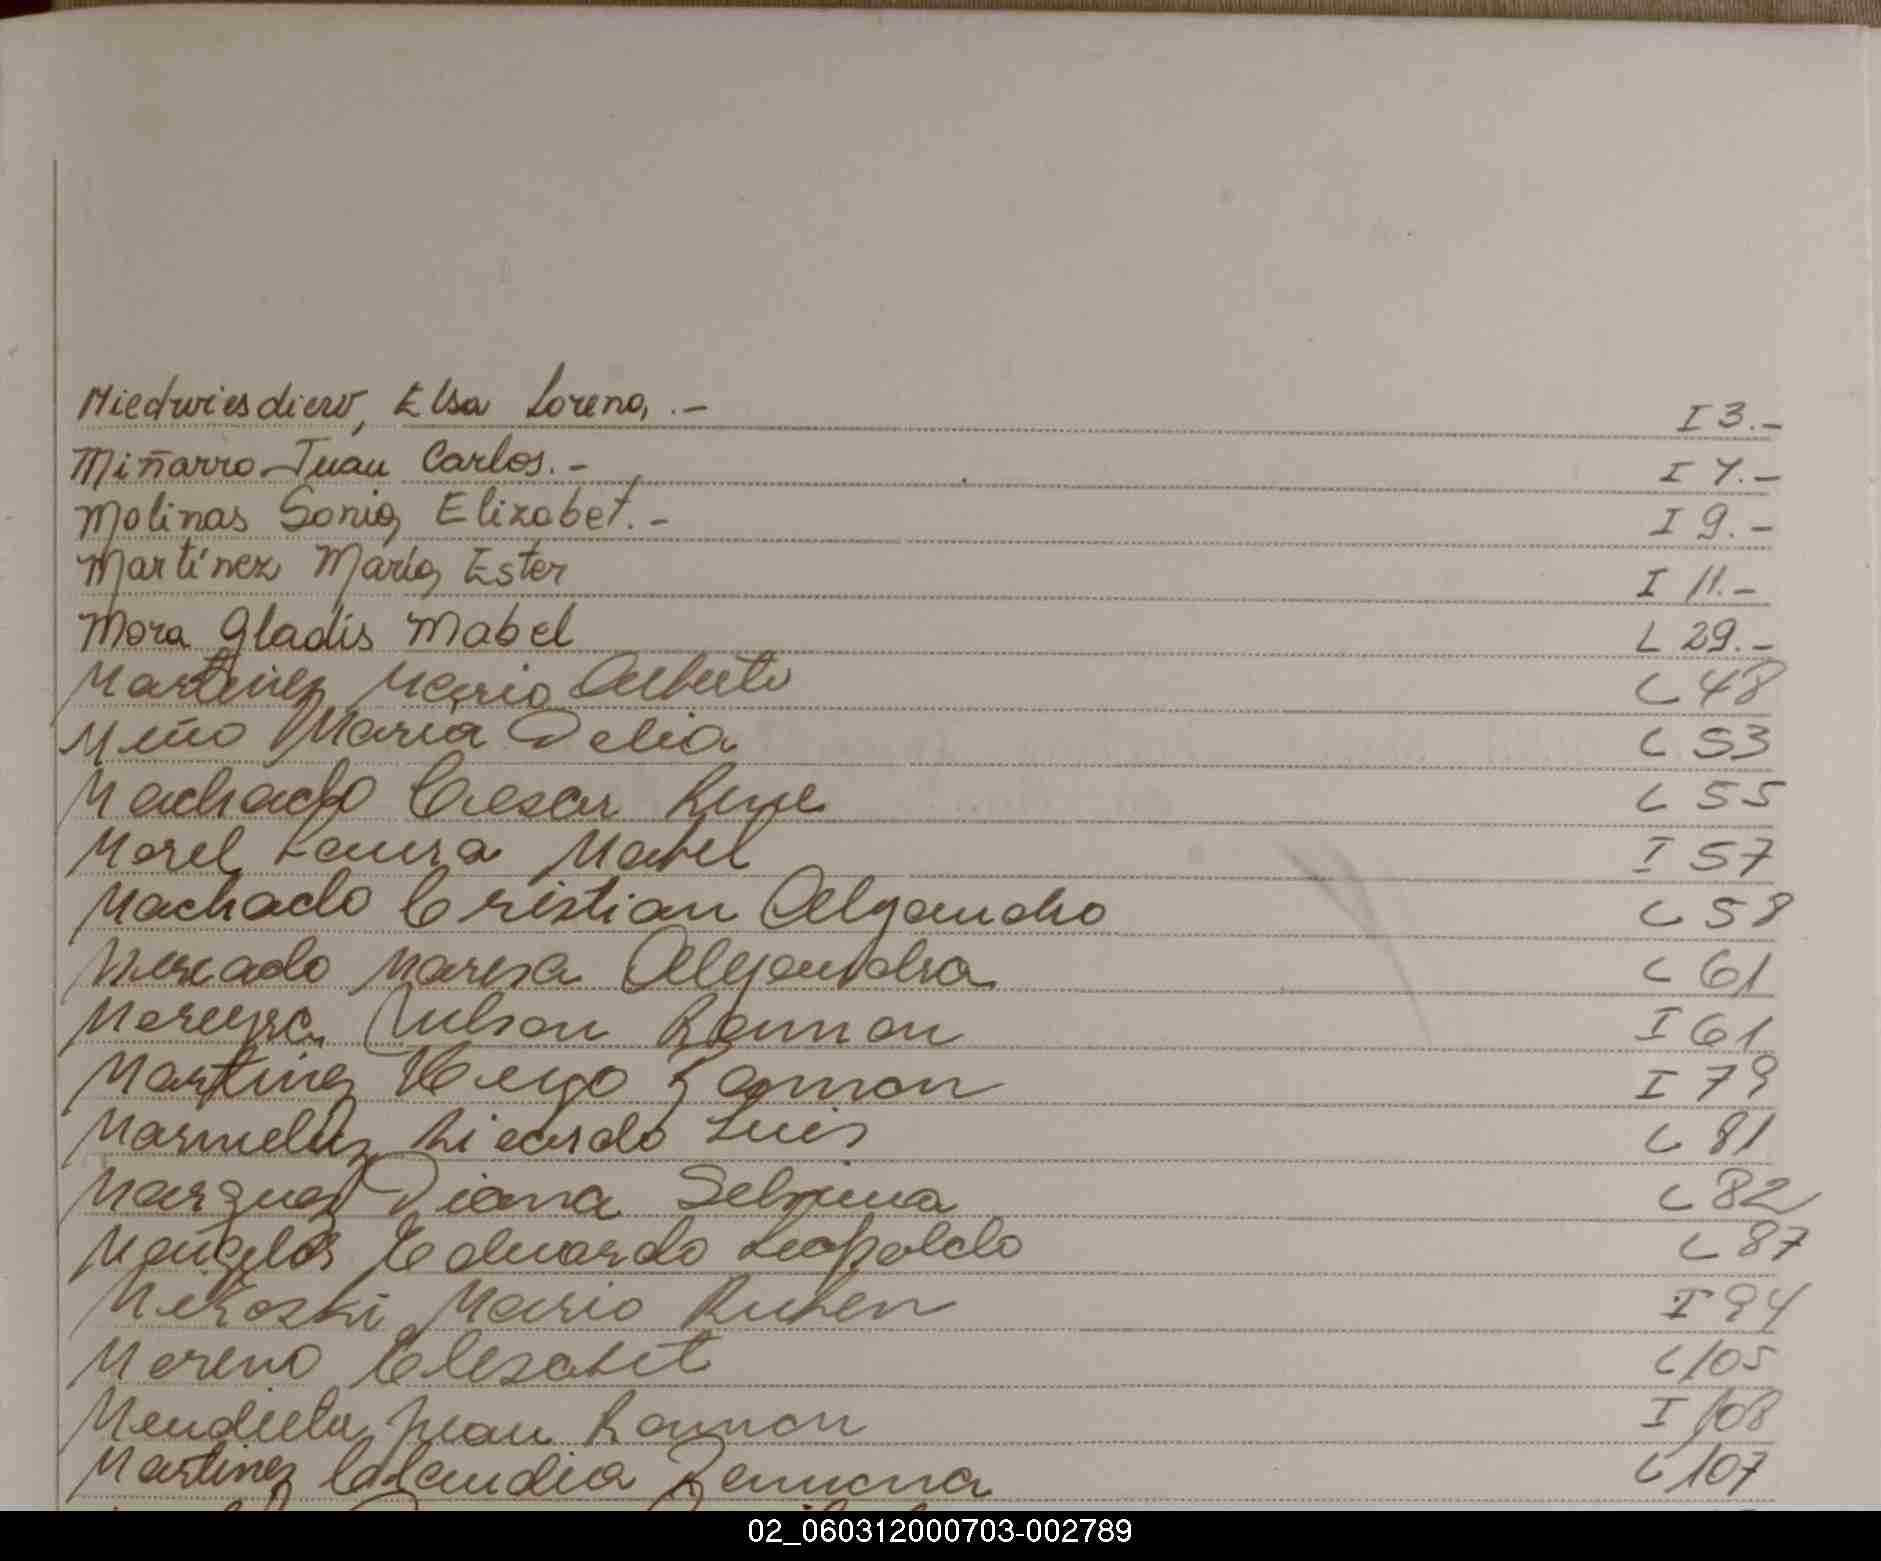 Miedwiesdiew, Elsa Lorena, .- I 3.-
Miñarro Juan Carlos.- I 7.-
Molinas Sonia Elizabet.- I 9.-
Martínez María Ester I 11.-
Mora Gladis Mabel L 29.-
Martinez Mario Alberto L 48
Miño María Delia L 53
Machado Cesar Rene L 55
Morel Laura Mabel I 57
Machado Cristian Alejandro L 58
Mercado Maria Alejandra L 61
Mereyra Nelson Ramon I 61
Martinez Hugo Ramon I 79
Ricardo Luis L 81
Marquez Diana Sabrina L 82
Eduardo Leopoldo L 87
Mario Ruben I 94
Moreno Elesabet L 105
Mendieta Juan Ramon I 108
Martinez Claudia Ramona L 107
02_060312000703-002789